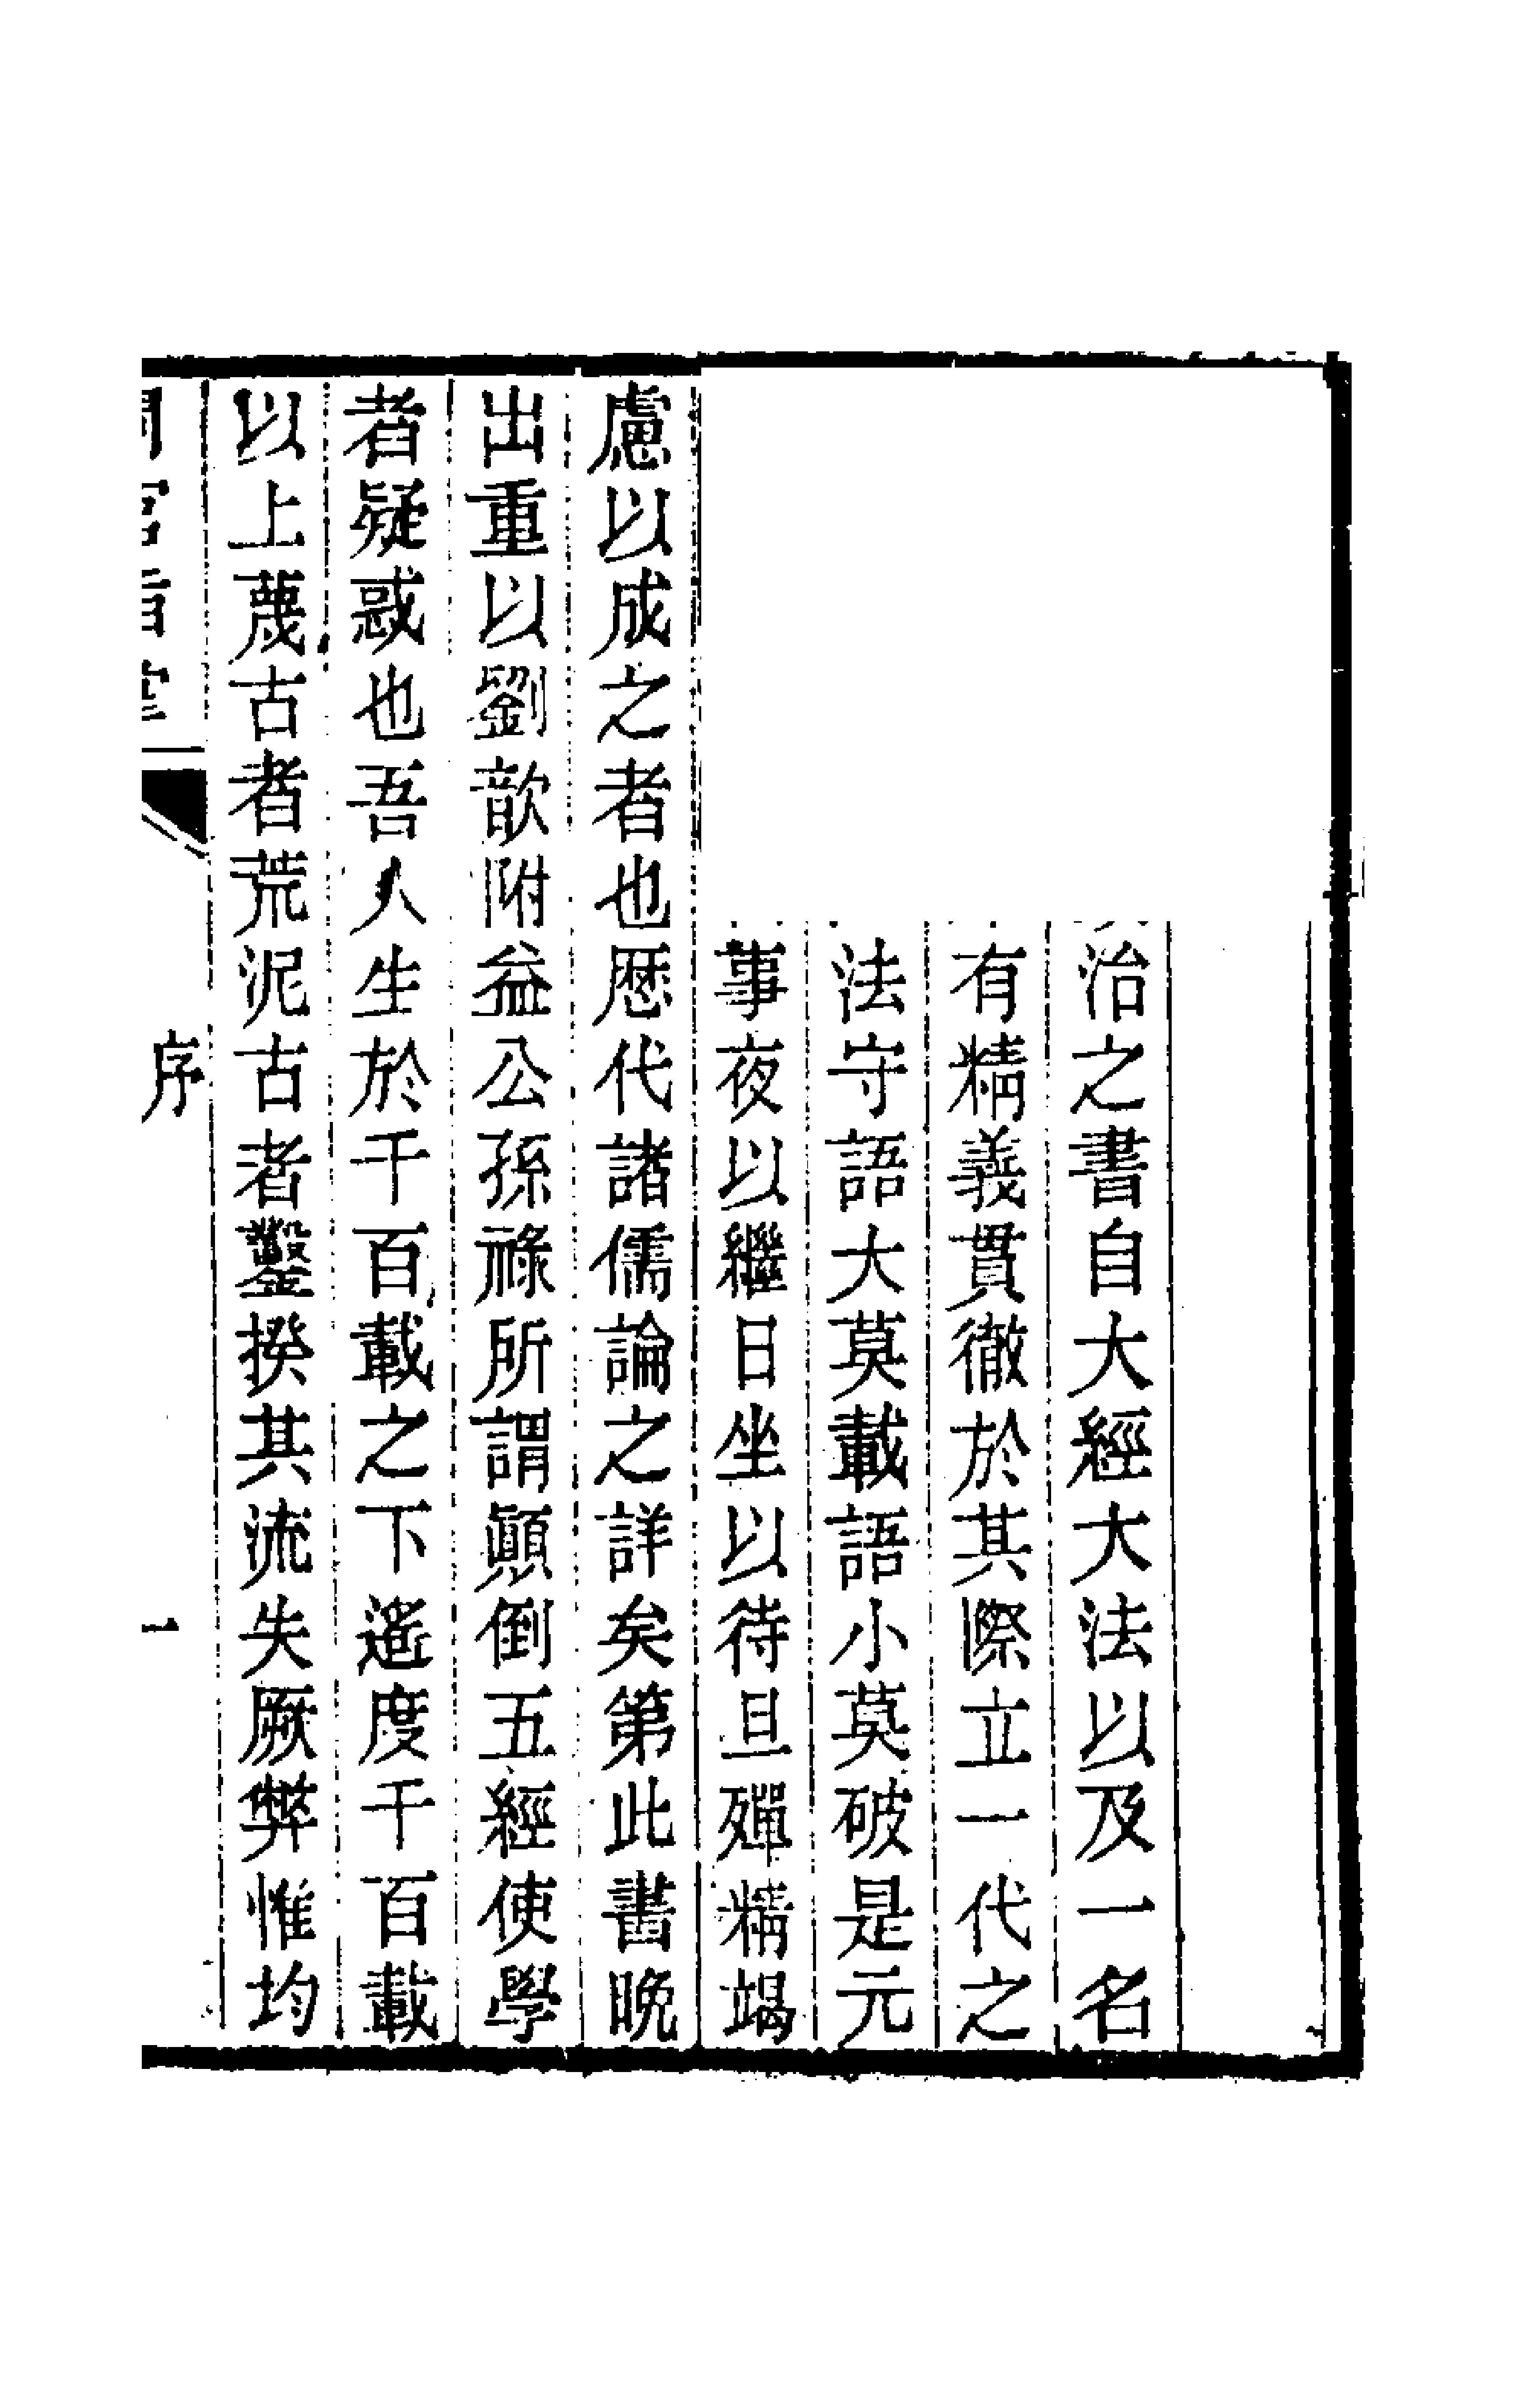 治之書自大經大法以及一名
有精義貫徹於其際立一代之
法守語大莫載語小莫破是元
事夜以繼日坐以待旦殫精竭
慮以成之者也歷代諸儒論之詳矣第此書晚
出重以劉歆附益公孫祿所謂顛倒五經使學
者疑惑也吾人生於千百載之下遙度千百載
以上蔑古者荒泥古者鑿揆其流失厥弊惟均
序
一